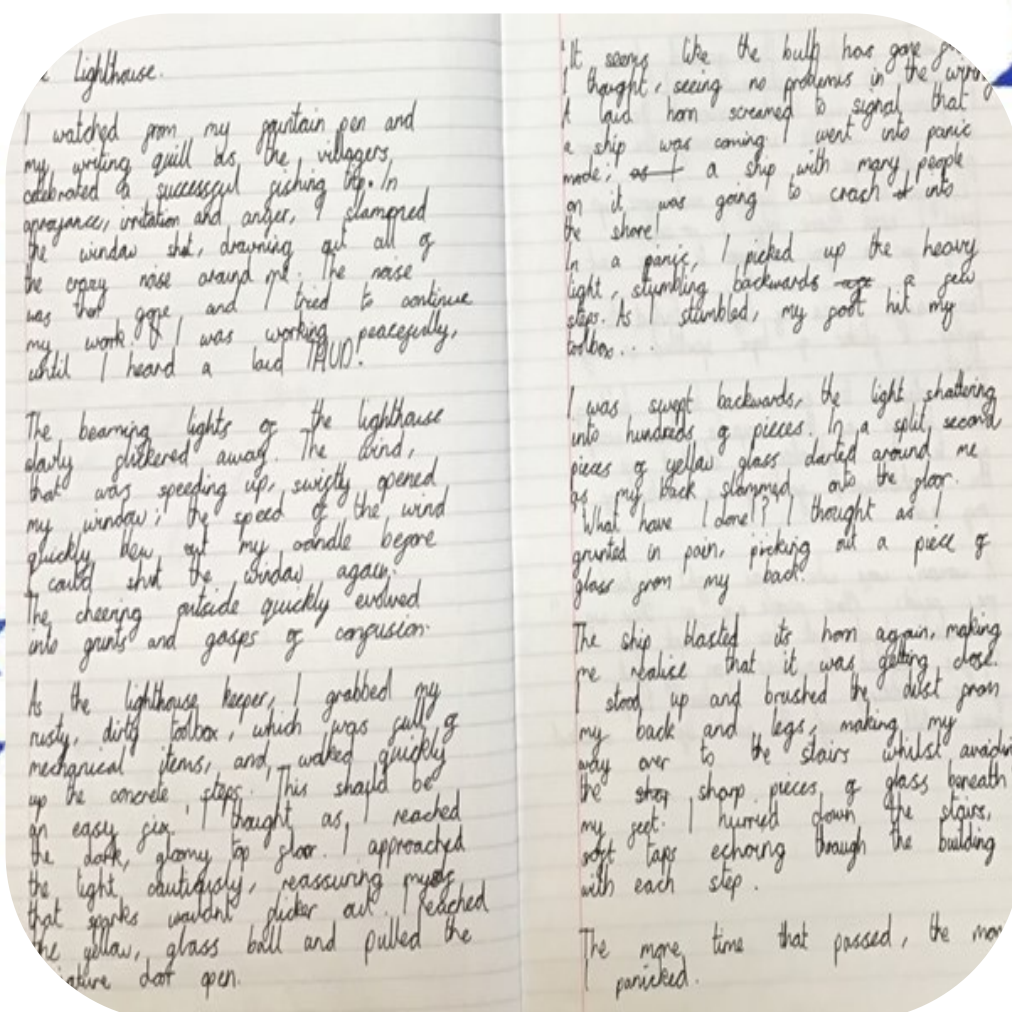 Lighthouse.
I watched from my fountain pen and
my writing quill as the villagers
celebrated a successful fishing trip. In
annoyance, irritation and anger, I slammed
the window shut, drowning out all of
the crazy noise around me. The noise
was then gone, and I tried to continue
my work. I was working peacefully,
until I heard a loud THUD!
The beaming lights of the lighthouse
slowly flickered away. The wind,
that was speeding up, swiftly opened
my window; the speed of the wind
quickly blew out my candle before
I could shut the window again.
The cheering outside quickly evolved
into grunts and gasps of confusion.
As the lighthouse keeper, I grabbed my
rusty, dirty toolbox, which was full of
mechanical items, and walked quickly
up the concrete steps. 'This should be
an easy fix' I thought as I reached
the dark, gloomy top floor. I approached
the light cautiously, reassuring myself
that sparks wouldn't flicker out. I reached
the yellow, glass ball and pulled the
door open.
'It seems like the bulb has gone
I thought, seeing no problems in the wiring
A loud horn screamed to signal that
a ship was coming. I went into panic
mode; a ship with many people
on it was going to crash into
the shore!
In a panic, I picked up the heavy
light, stumbling backwards a few
steps. As I stumbled, my foot hit my
toolbox...
I was swept backwards, the light shattering
into hundreds of pieces. In a split second
pieces of yellow glass darted around me
as my back slammed onto the floor.
'What have I done!?' I thought as I
grunted in pain, picking out a piece of
glass from my back.
The ship blasted its horn again, making
me realise that it was getting close.
I stood up and brushed the dust from
my back and legs, making my
way over to the stairs whilst avoiding
the sharp pieces of glass beneath
my feet. I hurried down the stairs,
soft taps echoing through the building
with each step.
The more time that passed, the more
I panicked.